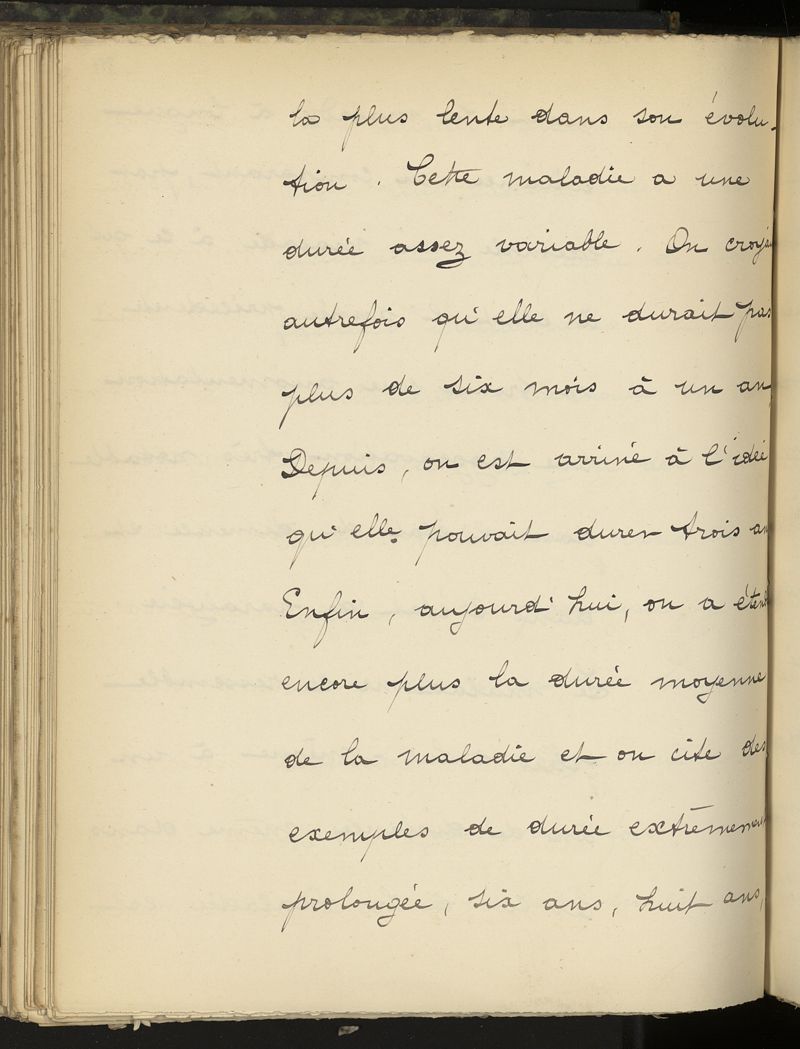 la plus lente dans son évolu-
tion. Cette maladie a une
durée assez variable. On croya
autrefois qu'elle ne durait pas
plus de six mois à un an,
Depuis, on est arrivé à l'idée
qu'elle pouvait durer trois an
Enfin, aujourd'hui, on a étend
encore plus la durée moyenne
de la maladie et on cite des
exemples de durée extrêmement
prolongée, six ans, huit ans,